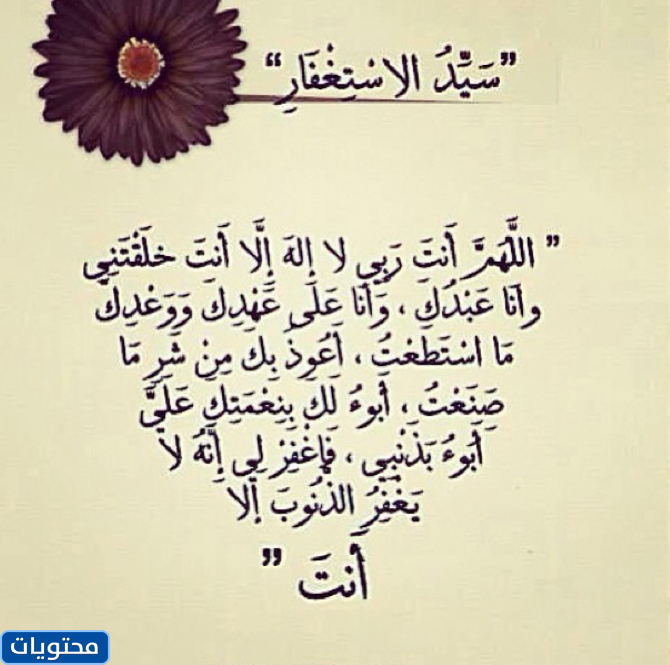 ”سَيِّدُ الاسْتِغْفَارِ“
” اللَّهُمَّ أَنتَ رَبِي لا إلهَ إِلَّا أَنتَ خلَقْتَنِي
وأنَا عَبْدُكَ ، وَأنَا عَلَى عَهْدِكَ وَوَعْدِكَ
مَا اسْتَطَعْتُ ، أَعُوذُ بِك مِنْ شَرِ مَا
صَنَعْتُ ، أَبوءُ لَكَ بِنِعْمَتِكِ عَلَيَّ
أَبوءُ بَذَنْبِي ، فَاِغْفِرْ لِي إنَّهُ لا
يَغْفِرُ الذُنُوبَ إلا
أَنتَ ”
محتويات